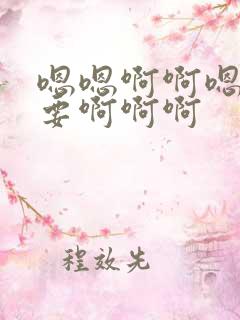 嗯嗯啊啊嗯
要啊啊啊
程效先